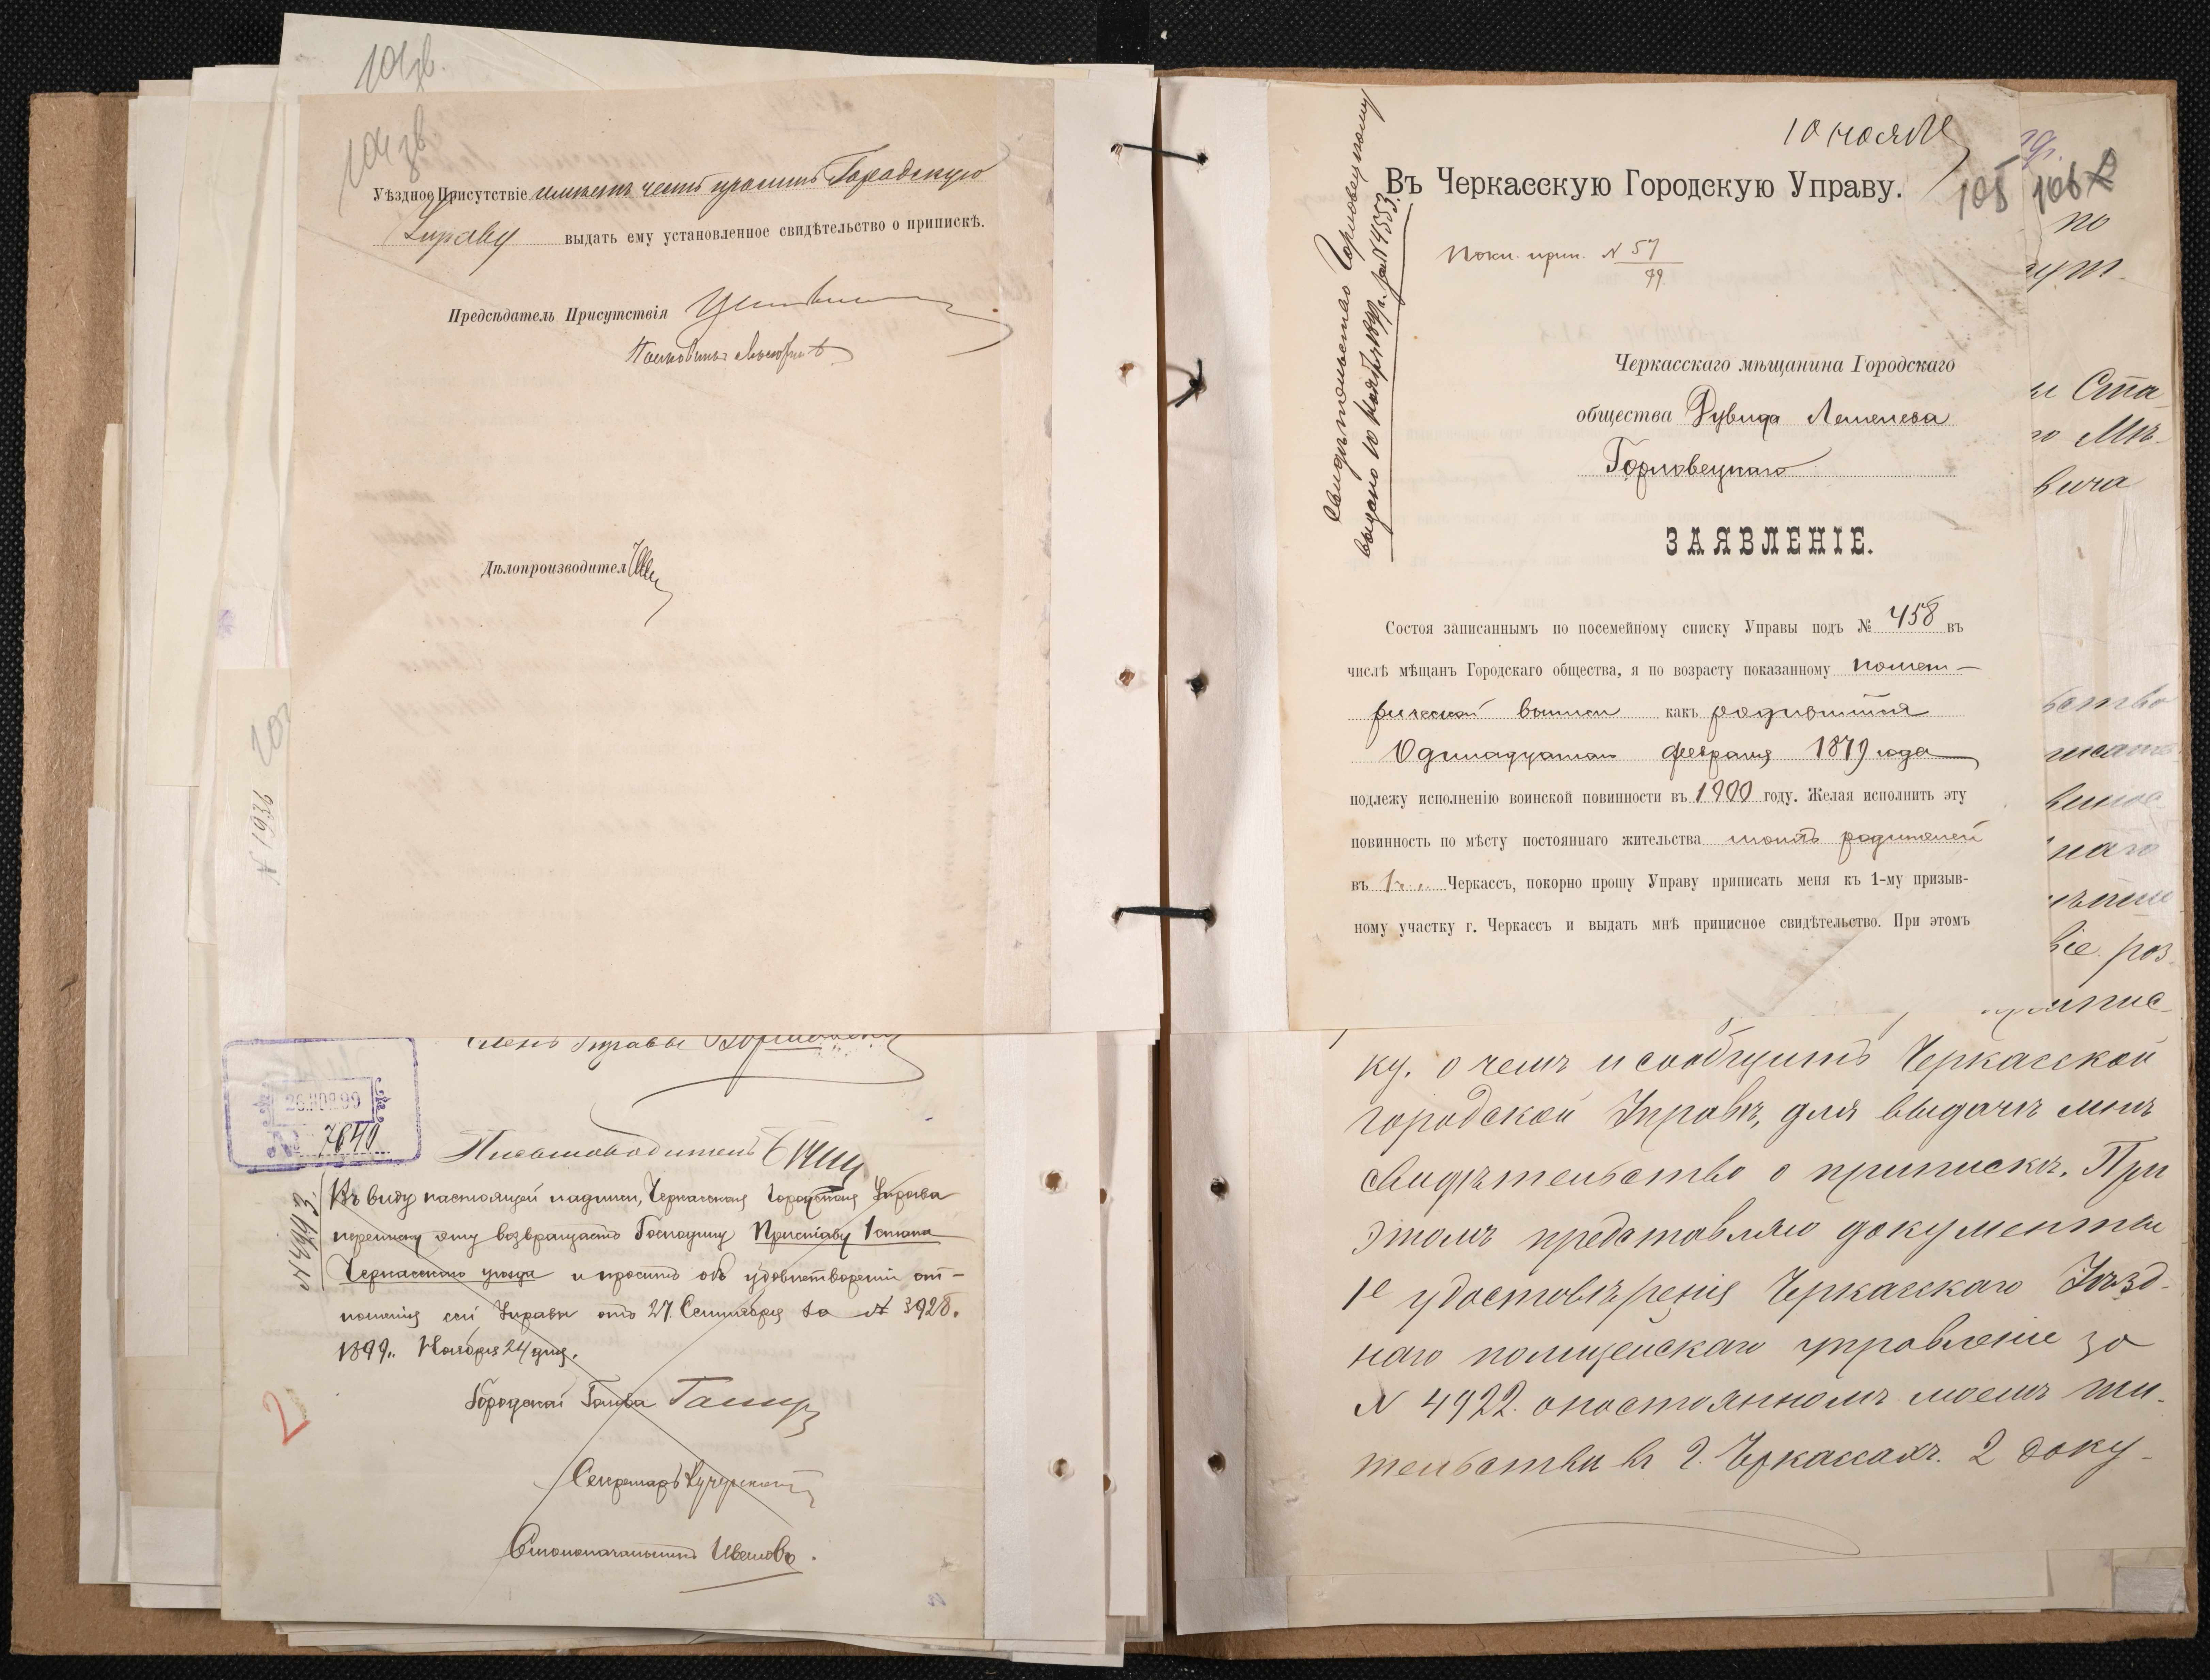 101 зв.
104 зв.
Уѣздное Присутствіе имѣетъ честь просить Городскую
Управу выдать ему установленное свидѣтельство о припискѣ.
Предсѣдатель Присутствія
Дѣлопроизводител
№ 1936
Членъ Управы
26 НОЯ 99
№ 7640
Письмоводитель
№ 4993.
Въ виду настоящей надписи, Черкасская Городская Управа
переписку эту возвращаетъ Господину Приставу 1 стана
Черкасскаго уѣзда и проситъ объ удовлетвореніи от-
ношенія сей Управы отъ 27 Сентября за № 3928.
1899 г. Ноября 24 дня.
Городской Голова
Секретарь
Столоначальникъ Ивановъ.
2
10 нояб
105
106
Въ Черкасскую Городскую Управу.
Свидѣтельство Горловецкому
выдано 10 Ноября 1899 г. за № 4553.
№ 57
99
Черкасскаго мѣщанина Городскаго
общества Дувида
Горловецкаго
ЗАЯВЛЕНІЕ.
Состоя записаннымъ по посемейному списку Управы подъ № 458 въ
числѣ мѣщанъ Городскаго общества, я по возрасту показанному по мет-
рической выписи какъ родившійся
Одинадцатаго февраля 1879 года
подлежу исполненію воинской повинности въ 1900 году. Желая исполнить эту
повинность по мѣсту постояннаго жительства моихъ родителей
въ г. Черкассъ, покорно прошу Управу приписать меня къ 1-му призыв-
ному участку г. Черкассъ и выдать мнѣ приписное свидѣтельство. При этомъ
по
Ста
Мѣ
вича
наго
роз
ку, о чемъ и сообщить Черкасской
городской Управѣ, для выдачи мнѣ
свидѣтельство о припискѣ. При
этомъ представляю документы
1е удостовѣренія Черкасскаго Уѣзд-
наго полицейскаго управленіе за
№ 4922. о постоянномъ моемъ жи-
тельствѣ въ г. Черкассахъ. 2 доку-